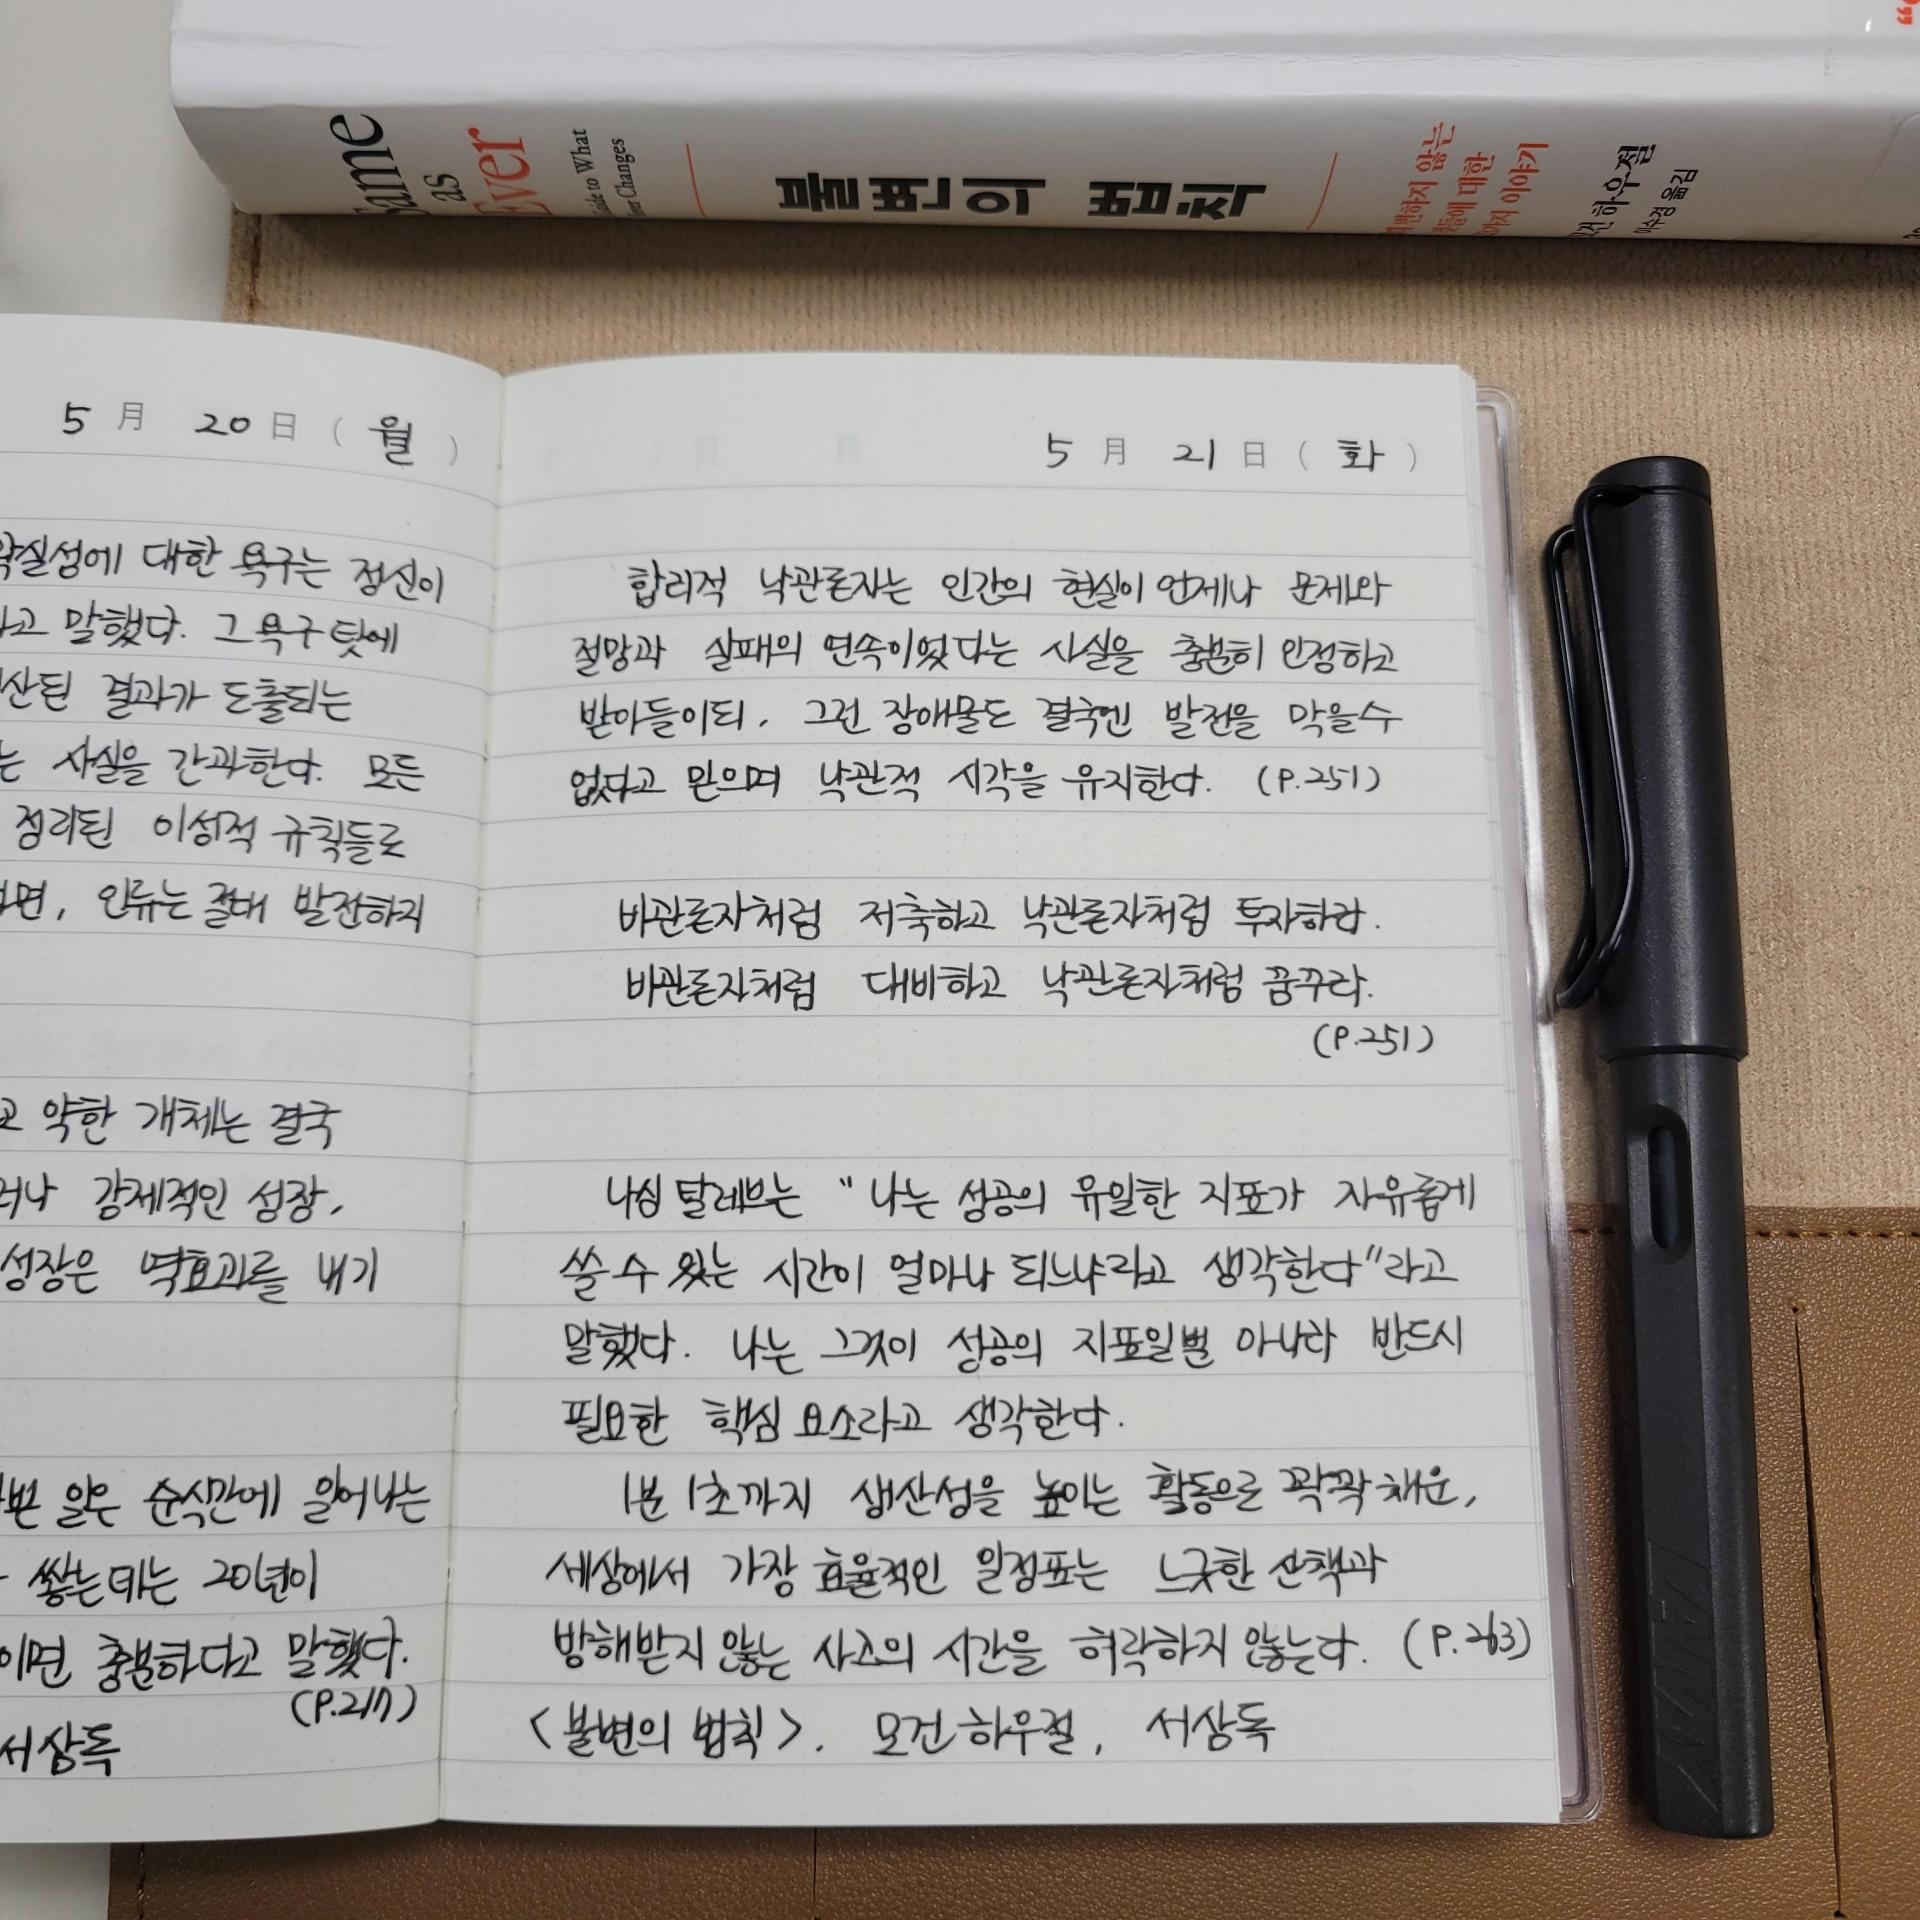 Same
as
Ever
to What
Changes
불변의 법칙
하지 않는
대한
이야기
하우절
이수경 옮김
5 月 20 日 ( 월 )
확실성에 대한 욕구는 정신이
라고 말했다. 그 욕구 탓에
산된 결과가 도출되는
는 사실을 간과한다. 모든
정리된 이성적 규칙들로
면, 인류는 절대 발전하지
고 약한 개체는 결국
러나 강제적인 성장,
성장은 역효과를 내기
쁜 일은 순식간에 일어나는
쌓는데는 20년이
이면 충분하다고 말했다.
(P.217)
서상독
5 月 21 日 ( 화 )
합리적 낙관론자는 인간의 현실이 언제나 문제와
절망과 실패의 연속이었다는 사실을 충분히 인정하고
받아들이되, 그런 장애물도 결국엔 발전을 막을수
없다고 믿으며 낙관적 시각을 유지한다. (P.251)
비관론자처럼 저축하고 낙관론자처럼 투자하라.
비관론자처럼 대비하고 낙관론자처럼 꿈꾸라.
(P.251)
나심 탈레브는 "나는 성공의 유일한 지표가 자유롭게
쓸 수 있는 시간이 얼마나 되느냐라고 생각한다"라고
말했다. 나는 그것이 성공의 지표일뿐 아니라 반드시
필요한 핵심 요소라고 생각한다.
1분 1초까지 생산성을 높이는 활동으로 꽉꽉 채운,
세상에서 가장 효율적인 일정표는 느긋한 산책과
방해받지 않는 사고의 시간을 허락하지 않는다. (P.263)
<불변의 법칙>. 모건 하우절, 서상독
LAMY